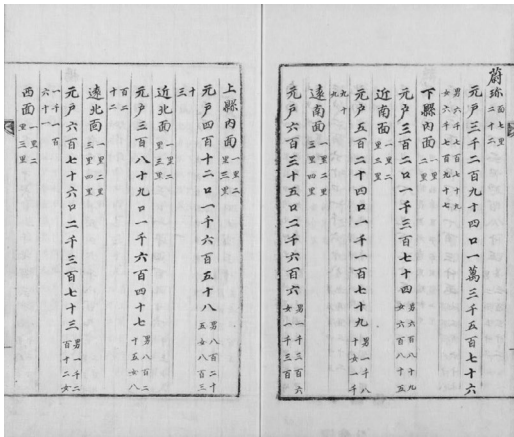 蔚珍 面七里二十二
元戶三千二百九十四口一萬三千五百七十六
男六千七百七十九女六千七百九十七
下縣內面 一里二里
元戶三百二口一千三百七十四 男六百八十九女六百八十五
近南面 一里二里三里
元戶五百二十四口一千一百七十九 男一千八十女一千
九十九
遠南面 一里二里三里四里
元戶六百三十五口二千六百六 男一千三百六女一千三百
上縣內面 一里二里三里
元戶四百十二口一千六百五十八 男八百二十五女八百三
十三
近北面 一里二里三里
元戶三百八十九口一千六百四十七 男八百二十五女八
百二十二
遠北面 一里二里三里四里
元戶六百七十六口二千三百七十三 男一千二百十二女
一千一百六十一
西面 一里二里三里